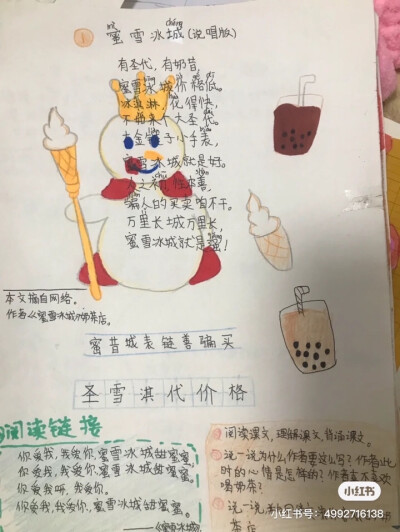 ① 蜜雪冰城(说唱版)
chéng
有圣代,有奶昔,
蜜雪冰城你格低。
冰淇淋,化得快,
不如来个大圣代。
子小手表,
蜜雪冰城就是好。
人之初,性本善,
骗人的买卖咱不干。
万里长城万里长,
蜜雪冰城就是强!
本文摘自网络。
作者:蜜雪冰城奶茶店。
蜜昔城表链善骗买
圣雪淇代价格
阅读链接
你爱我,我爱你,蜜雪冰城甜蜜蜜。
你爱我,我爱你,蜜雪冰城甜蜜蜜。
你爱我呀,我爱你。
你爱我,我爱你,蜜雪冰城甜蜜蜜。
——《蜜雪冰城》
阅读课文,理解课文,背诵课文。
说一说为什么作者要这么写?作者此
时的心情是怎样的?作者喜欢
喝奶茶?
说一说
小红书
小红书号:4992716138